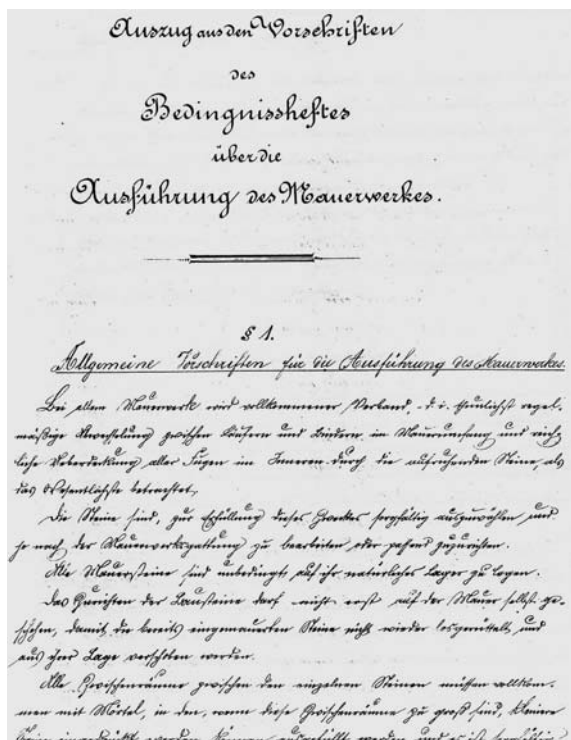 Auszug aus den Vorschriften
des
Bedingnissheftes
über die
Ausführung des Mauerwerkes.
§ 1.
Allgemeine Vorschriften für die Ausführung des Mauerwerkes.
Bei allem Mauerwerk wird vollkommener Verband, d. i. thunlichst regel-
mäßige Abwechslung zwischen Läufern und Bindern im Mauerumfang und reich-
liche Ueberdeckung aller Fugen im Inneren durch die aufruhenden Steine, als
das Wesentlichste betrachtet.
Die Steine sind, zur Erfüllung dieses Zweckes sorgfältig auszuwählen und
je nach der Mauerwerksgattung zu bearbeiten oder passend zuzurichten.
Alle Mauersteine sind unbedingt auf ihr natürliches Lager zu legen.
Das Zurichten der Bausteine darf nicht erst auf der Mauer selbst ge-
schehen, damit die bereits eingemauerten Steine nicht wieder losgerüttelt und
aus ihrer Lage verschoben werden.
Alle Zwischenräume zwischen den einzelnen Steinen müssen vollkom-
men mit Mörtel, in den, wenn diese Zwischenräume zu groß sind, kleinere
Steine eingedrückt werden können, ausgefüllt werden und es ist